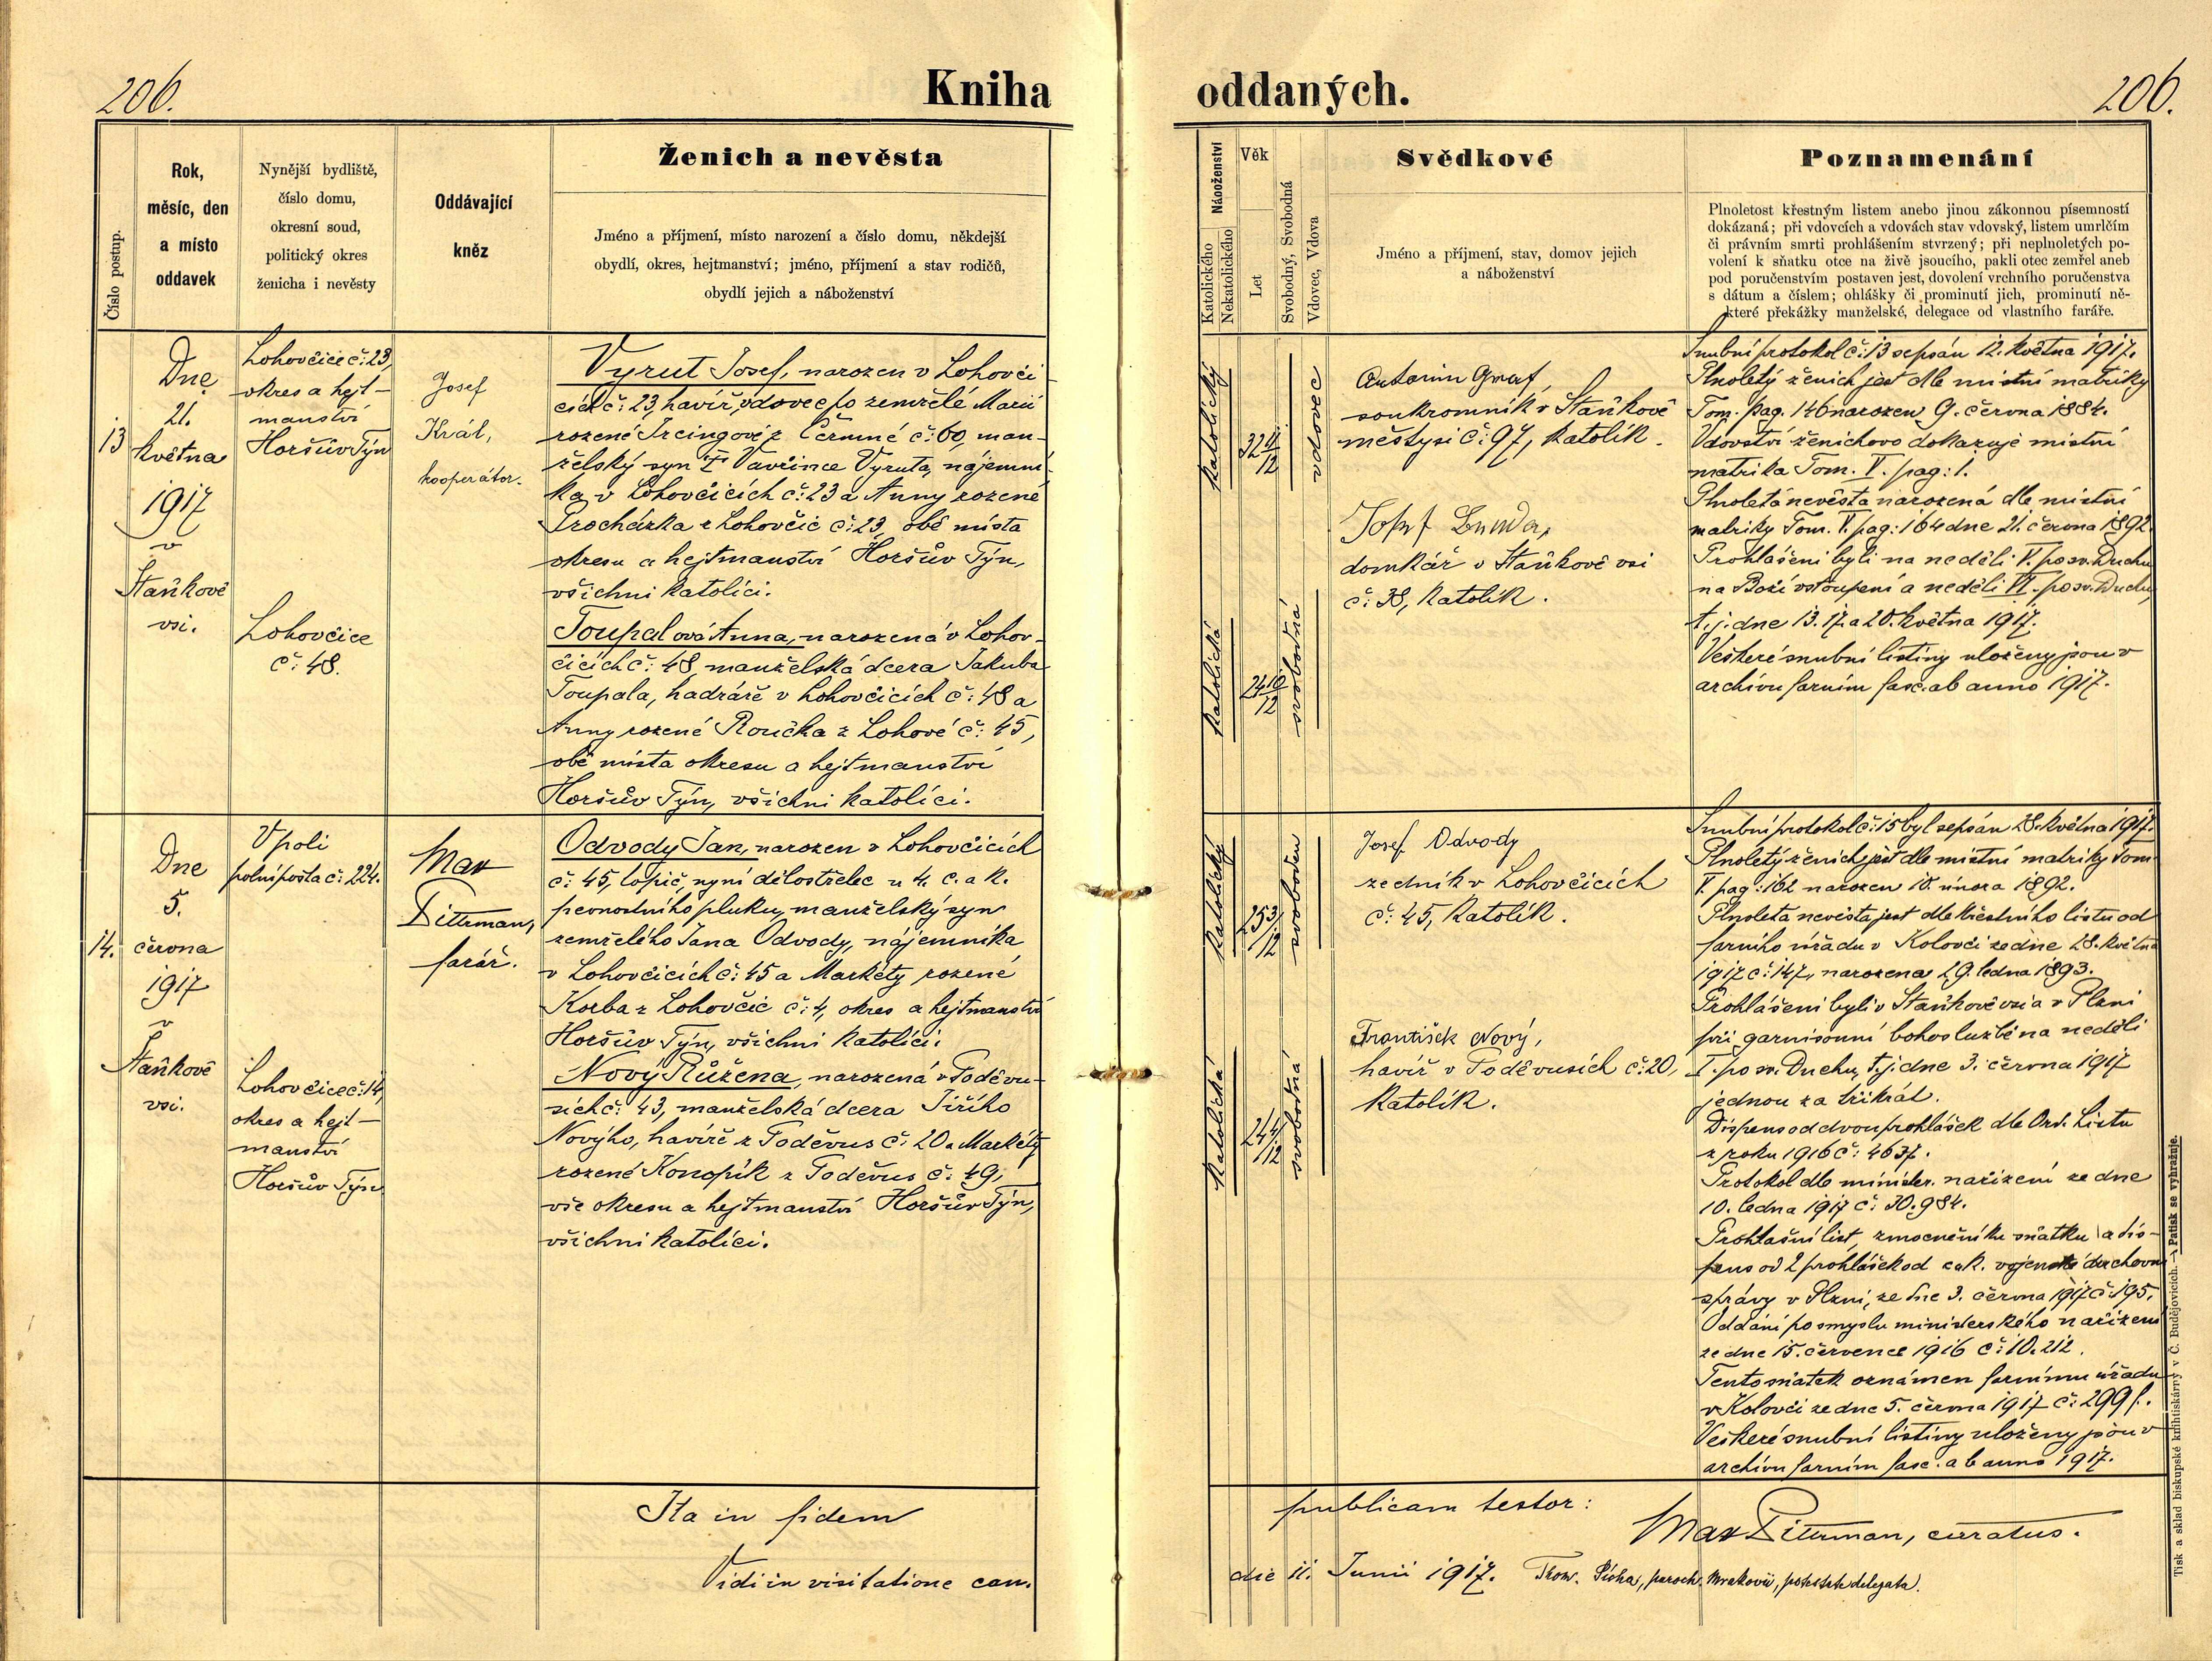 206.
Kniha
oddaných.
206.
Číslo postup.
Rok,
měsíc, den
a místo
oddavek
Nynější bydliště,
číslo domu,
okresní soud,
politický okres
ženicha i nevěsty
Oddávající
kněz
Ženich a nevěsta
Jméno a příjmení, místo narození a číslo domu, někdejší
obydlí, okres, hejtmanství; jméno, příjmení a stav rodičů,
obydlí jejich a náboženství
Náboženství
Katolického
Nekatolického
Věk
Let
Svobodný, Svobodná
Vdovec, Vdova
Svědkové
Jméno a příjmení, stav, domov jejich
a náboženství
Poznamenání
Plnoletost křestným listem anebo jinou zákonnou písemností
dokázaná; při vdovcích a vdovách stav vdovský, listem umrlčím
či právním smrti prohlášením stvrzený; při neplnoletých po-
volení k sňatku otce na živě jsoucího, pakli otec zemřel aneb
pod poručenstvím postaven jest, dovolení vrchního poručenstva
s dátum a číslem; ohlášky či prominutí jich, prominutí ně-
které překážky manželské, delegace od vlastního faráře.
13
Dne
21.
května
1917
v
Staňkově
vsi.
Lohovčice č: 23,
okres a hejt-
manství
Horšův Týn
Lohovčice
č: 48.
Josef
Král,
kooperátor.
Vyrut Josef, narozen v Lohovči
cích č: 23, havíř, vdovec po zemřelé Marii
rozené Ircingové z Čermné č: 60, man-
želský syn † Vavřince Vyruta, nájemní-
ka v Lohovčicích č: 23 a Anny rozené
Procházka z Lohovčic č: 23, obě místa
okresu a hejtmanství Horšův Týn,
všichni katolíci.
Toupalová Anna, narozená v Lohov-
čicích č: 48, manželská dcera Jakuba
Toupala, hadráře v Lohovčicích č: 48 a
Anny rozené Roučka z Lohové č: 45,
obě místa okresu a hejtmanství
Horšův Týn, všichni katolíci.
katolický
32 11/12
vdovec
katolická
24 10/12
svobodná
Antonín Graf,
soukromník v Staňkově
městysi č: 97, katolík.
Josef
domkář v Staňkově vsi
č: 38, katolík.
Snubní protokol č: 13 sepsán 12. května 1917.
Plnoletý ženich jest dle místní matriky
Tom. pag. 146 narozen 9. června 1884.
Vdovství ženichovo dokazuje místní
matrika Tom. V. pag: 1.
Plnoletá nevěsta narozená dle místní
matriky Tom. V. pag: 164 dne 21. června 1892.
Prohlášeni byli na neděli V. po sv. Duchu
na Boží vstoupení a neděli VI. po sv. Duchu,
t. j. dne 13. 17. a 20. května 1917.
Veškeré snubní listiny uloženy jsou v
archivu farním fasc. ab anno 1917.
14.
Dne
5.
června
1917
v
Staňkově
vsi.
V poli
polní pošta č: 224.
Lohovčice č: 14,
okres a hejt-
manství
Horšův Týn
Max
Dittrman,
farář.
Odvody Jan, narozen v Lohovčicích
č: 45, topič, nyní dělostřelec u 4. c. a k.
pevnostního pluku, manželský syn
zemřelého Jana Odvody, nájemníka
v Lohovčicích č: 45 a Markéty rozené
Korba z Lohovčic č: 4, okres a hejtmanství
Horšův Týn, všichni katolíci.
Nový Růžena, narozená v Poděvu-
sích č: 43, manželská dcera Jiřího
Nového, havíře z Poděvus č: 20 a Markéty
rozené Konopík z Poděvus č: 49,
vše okresu a hejtmanství Horšův Týn,
všichni katolíci.
katolický
25 3/12
svoboden
katolická
24 4/12
svobodná
Josef Odvody
zedník v Lohovčicích
č: 45, katolík.
František Nový,
havíř v Poděvusích č: 20,
katolík.
Snubní protokol č: 15 byl sepsán 28. května 1917.
Plnoletý ženich jest dle místní matriky Tom.
V. pag: 162 narozen 10. února 1892.
Plnoletá nevěsta jest dle křestního listu od
farního úřadu v Kolovči ze dne 28. května
1917 č: 147, narozena 29. ledna 1893.
Prohlášeni byli v Staňkově vsi a v Plzni
při garnisonní bohoslužbě na neděli
I. po sv. Duchu, t. j. dne 3. června 1917
jednou za třikrát.
Dispens od dvou prohlášek dle Ord. Listu
z roku 1916 č: 4637.
Protokol dle minister. nařízení ze dne
10. ledna 1917 č: 30.984.
Prohlašní list, zmocnění ku sňatku a dis-
pens od 2 prohlášek od c. a k. vojenské duchovní
správy v Plzni, ze dne 3. června 1917 č: 195.
Oddáni po smyslu ministerského nařízení
ze dne 15. července 1916 č: 10.212.
Tento sňatek oznámen farnímu úřadu
v Kolovči ze dne 5. června 1917 č: 299 f.
Veškeré snubní listiny uloženy jsou v
archivu farním fasc. ab anno 1917.
Ita in fidem
publicam testor:
Max Dittrman, curatus.
Vidi in visitatione can.
die 11. Junii 1917. Thom. Pícha, paroch. Mrakovii, potestate delegata).
Tisk a sklad biskupské knihtiskárny v Č. Budějovicích. — Patisk se vyhražuje.